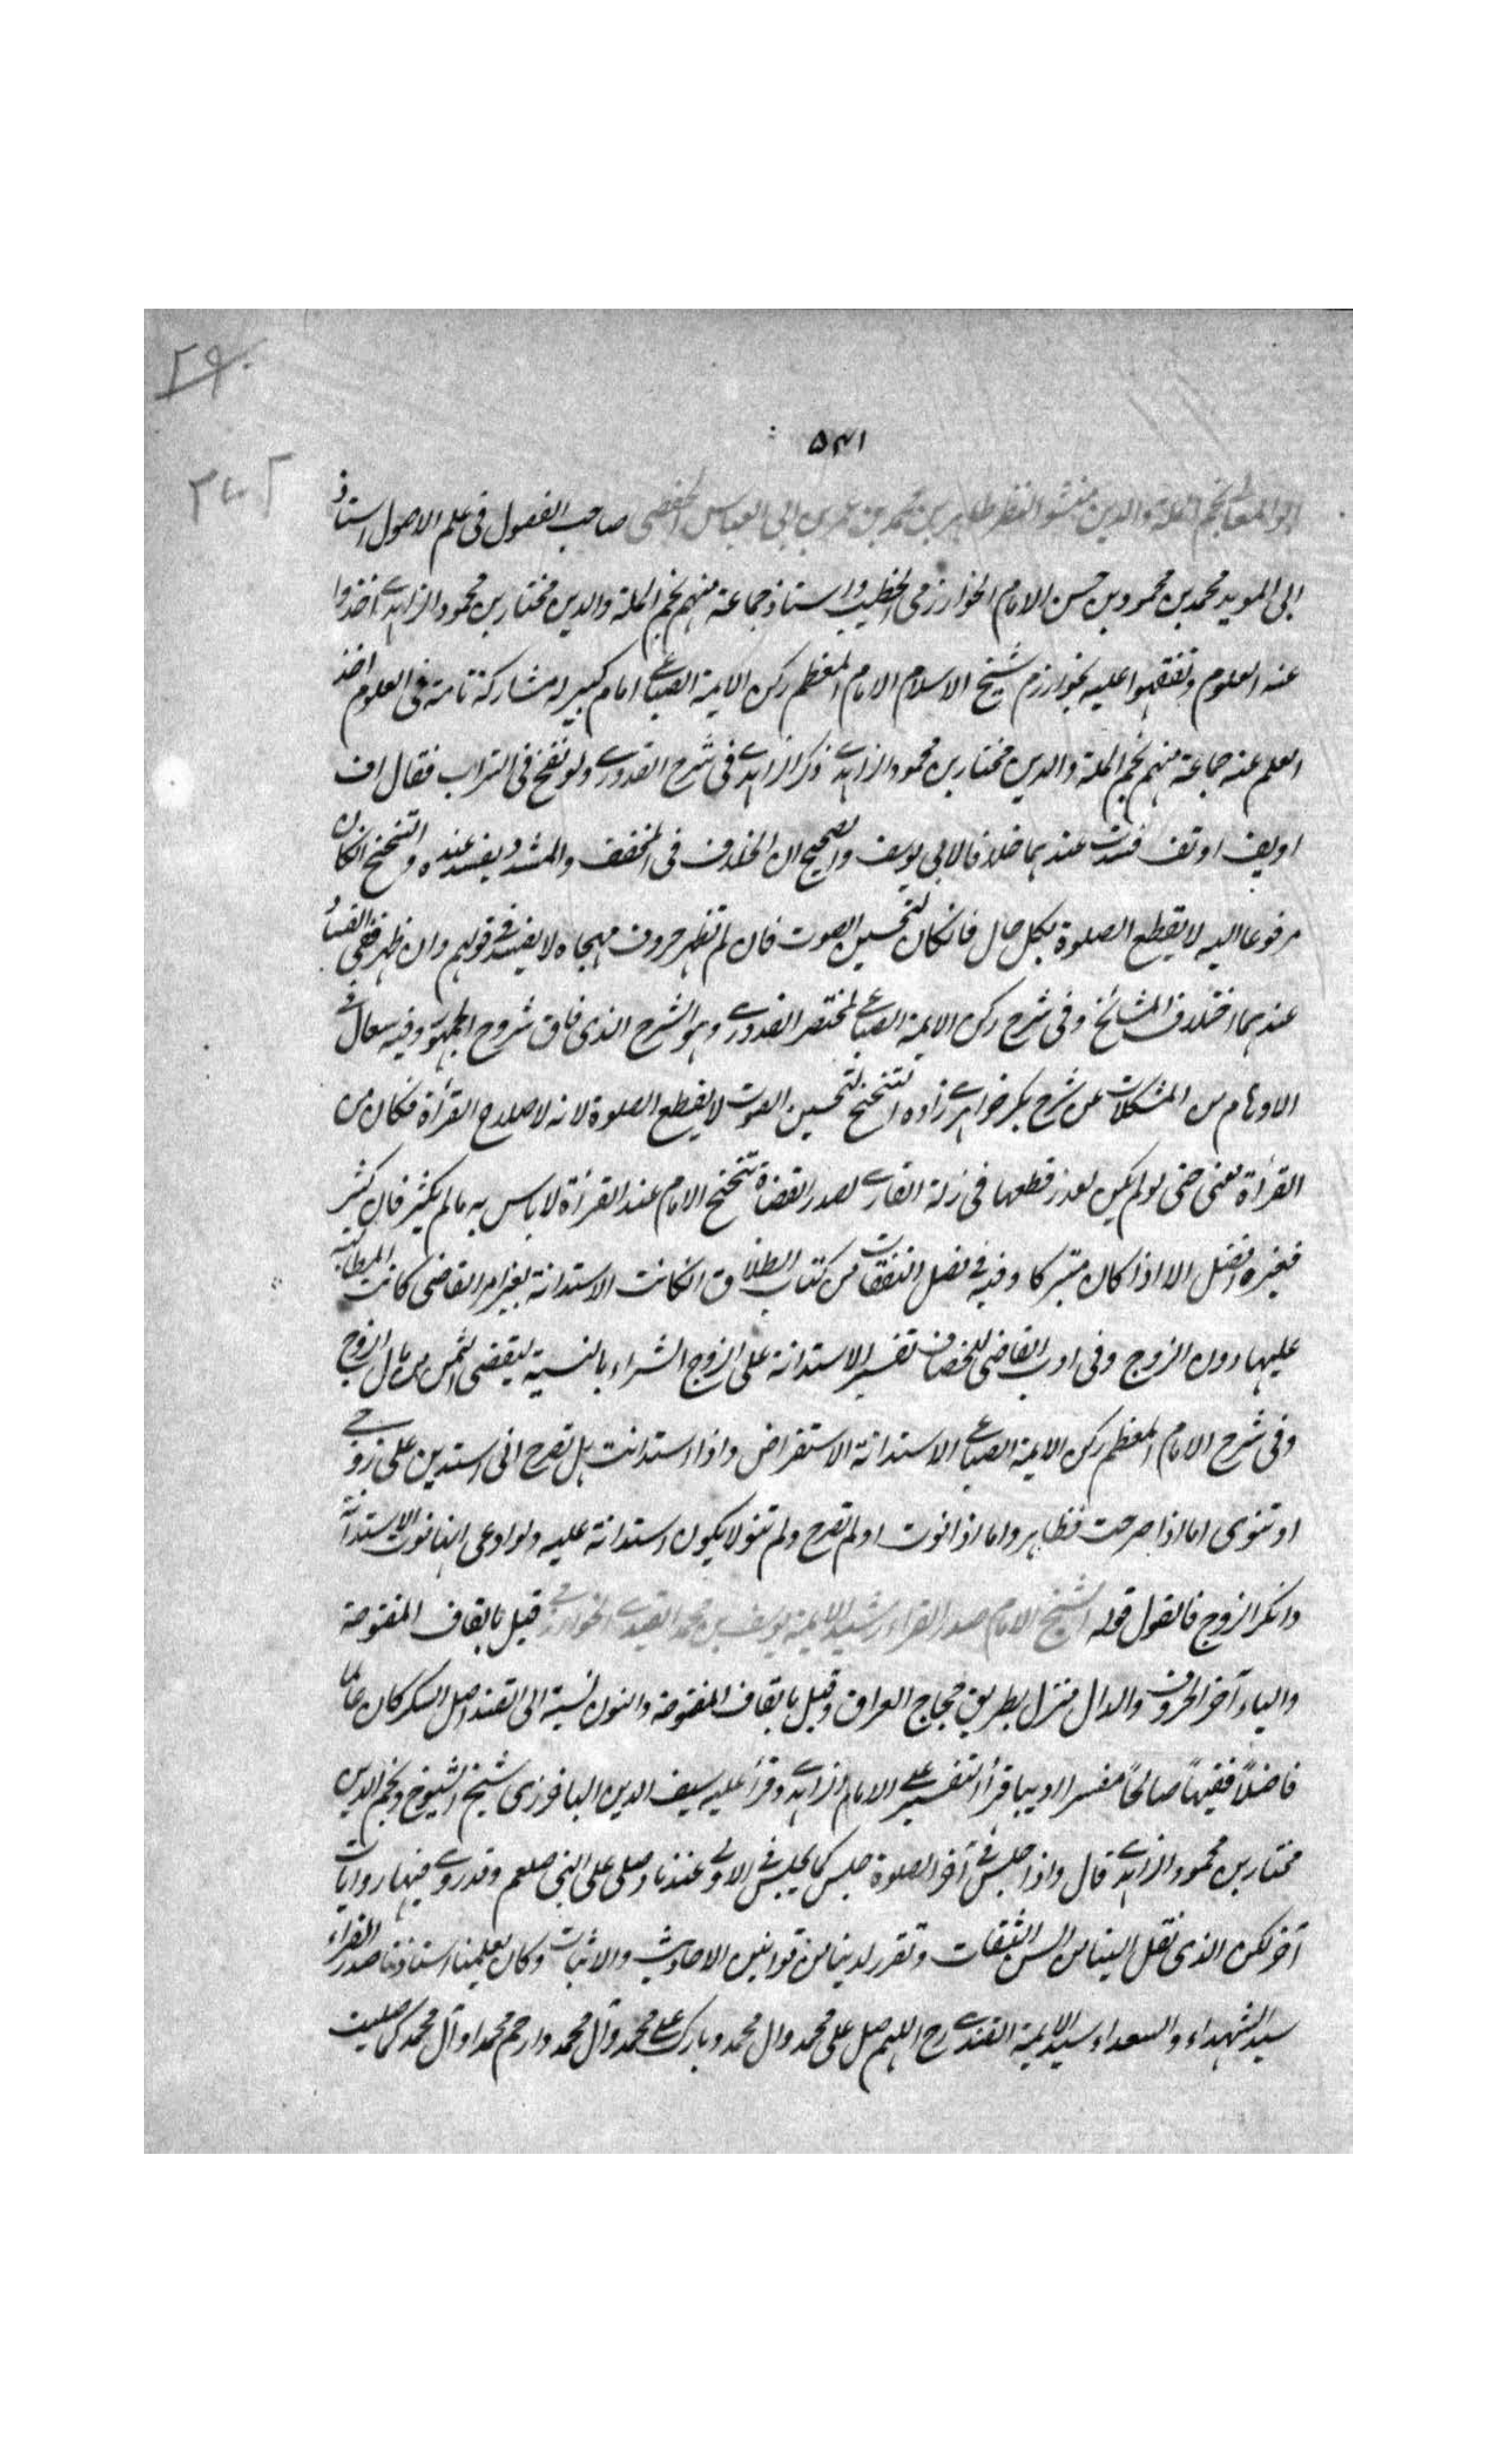 ۵۴۱
ابو المعالی نجم الملة والدین منشو النظر طاهر بن محمد بن عمر بن ابی العباس الحفصی صاحب الفصول فی علم الاصول استاذ
ابی الموید محمد بن محمود بن حسن الامام الخوارزمی الخطیب واستاذ جماعة منهم نجم الملة والدین مختار بن محمود الزاهدی اخذوا
عنه العلوم وتفقهوا علیه بخوارزم شیخ الاسلام الامام المعظم رکن الایمة الصباغی امام کبیر له مشارکة تامة فی العلوم اخذ
العلم عنه جماعة منهم نجم الملة والدین مختار بن محمود الزاهدی ذکر الزاهدی فی شرح القدوری ولو نفخ فی التراب فقال اف
اویف اوتف فسدت عندهما خلافا لابی یوسف والصحیح ان الخلاف فی المخفف والمشدد یفسد عنده والتنحنح انکان
مرفوعا الیه لا یقطع الصلوة بکل حال فانکان لتحسین الصوت فان لم تظهر حروف مهجاه لا یفسد فی قولهم وان ظهر ففی الفساد
عندهما اختلاف المشائخ وفی شرح رکن الایمة الصباغی لمختصر القدوری وهو الشرح الذی فاق شروح الجمهور وفیه سعال فی
الاوهام من المشکلات عن شرح بکر خواهرزاده التنحنح لتحسین الصوت لا یقطع الصلوة لانه لاصلاح القرأة فکان من
القرأة معنی حتی لو لم یکن لعذر قطعها فی زلة القاری لصدر القضاة تنحنح الامام عند القرأة لا باس به ما لم یکثر فان کثر
فغیره افضل الا اذا کان متبرکا وفیه فی فصل النفقات من کتاب الطلاق انکانت الاستدانة بغیر امر القاضی کانت المطالبة
علیها دون الزوج وفی ادب القاضی للخصاف تفسیر الاستدانة علی الزوج الشراء بالنسیة لیقضی الثمن من مال الزوج
وفی شرح الامام المعظم رکن الایمة الصباغی الاستدانة الاستقراض واذا استدانت هل تصرح انی استدین علی زوجی
او تنوی اما اذا صرحت فظاهر واما اذا نوت او لم تصرح ولم تنو لا یکون استدانة علیه ولو ادعی انها نوت الاستدانة
وانکر الزوج فالقول قوله الشیخ الامام صدر القراء رشید الایمة یوسف بن محمد القیدی الخوارزمی قیل بالقاف المفتوحة
والیاء آخر الحروف والدال منزل بطریق حجاج العراق وقیل بالقاف المفتوحة والنون نسبة الی القند اصل السکر کان عالما
فاضلاً فقیهاً صالحاً مفسرا ادیبا قرأ التفسیر علی الامام الزاهدی وقرأ علیه سیف الدین الباخرزی شیخ الشیوخ ونجم الدین
مختار بن محمود الزاهدی قال واذا جلس فی آخر الصلوة جلس کما یجلس فی الاولی عندنا وصلی علی النبی صلعم وقد روی فیها روایات
آخر لکن الذی نقل الینا من السن الثقات وتقرر لدینا من قوانین الاحادیث والاثبات وکان یعلمنا استاذنا صدر القراء
سید الشهداء والسعداء سید الایمة القندی رح اللهم صل علی محمد وال محمد وبارک علی محمد وآل محمد وارحم محمدا وآل محمد کما صلیت